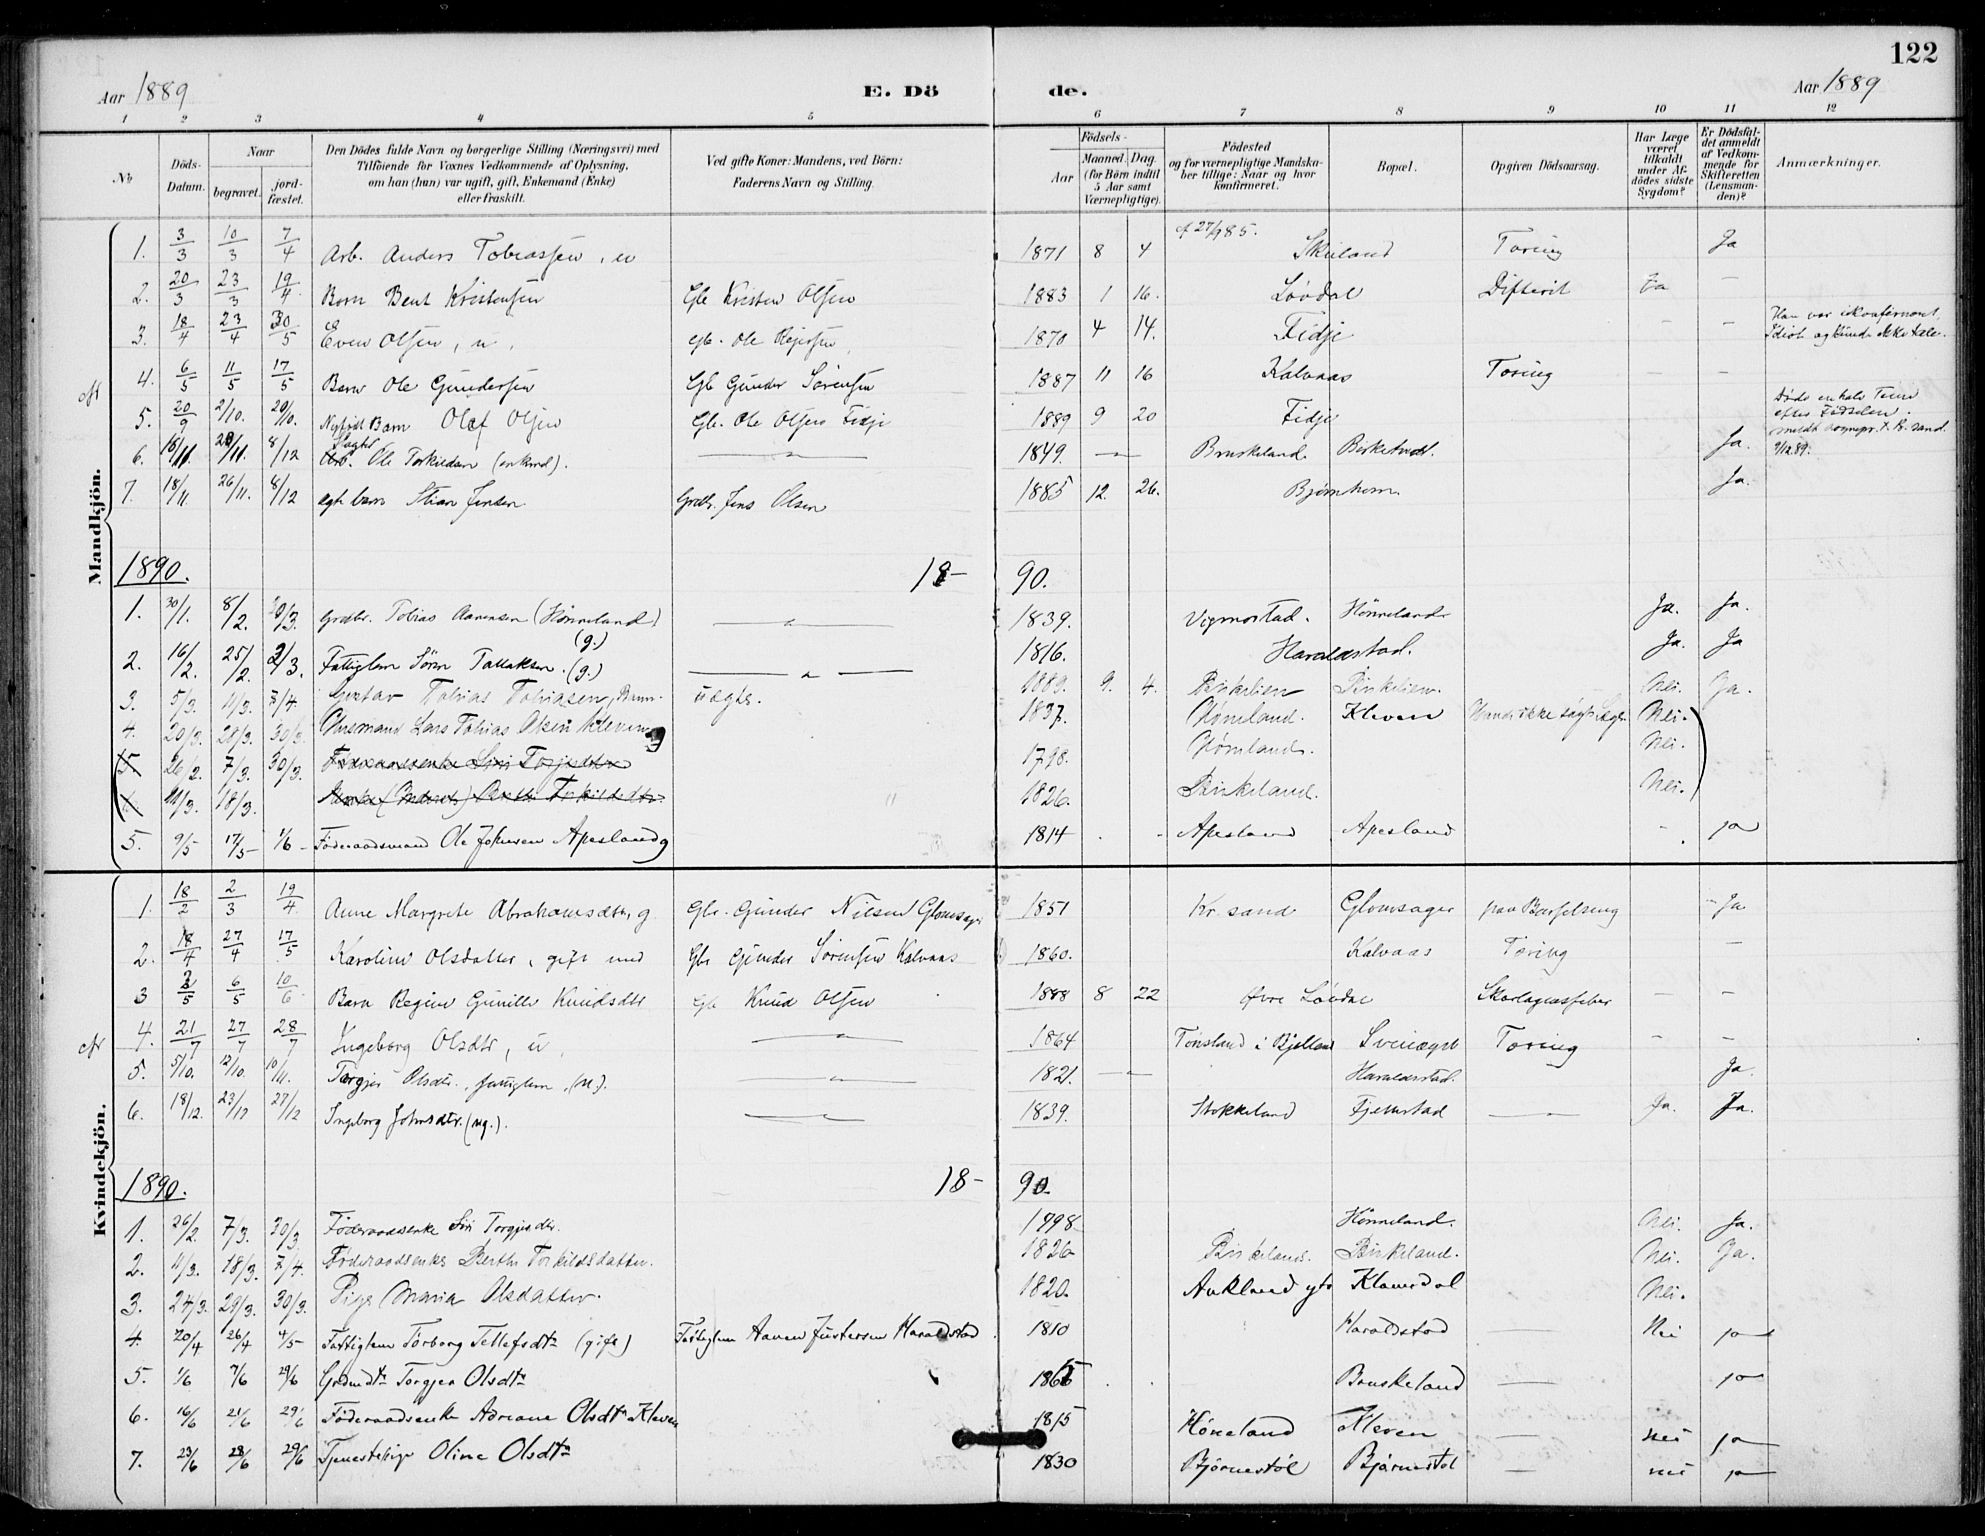 122
Aar 1889 E. Dö de. Aar 1889
1 2 3 4 5 6 7 8 9 10 11 12
No Döds-Datum. Naar begravet. jordfæstet. Den Dödes fulde Navn og borgerlige Stilling (Næringsvei) med Tilföiende for Voxnes Vedkommende af Oplysning, om han (hun) var ugift, gift, Enkemand (Enke) eller fraskilt. Ved gifte Koner: Mandens, ved Börn: Faderens Navn og Stilling. Födsels- Aar Maaned. Dag. (for Börn indtil 5 Aar samt Værnepligtige). Födested og for værnepligtige Mandskaber tillige: Naar og hvor konfirmeret. Bopæl. Opgiven Dödsaarsag. Har Læge været tilkaldt under Afdödes sidste Sygdom? Er Dödsfaldet anmeldt af Vedkommende for Skifteretten (Lensmanden)? Anmærkninger.
Mandkjön.
1. 3/3 10/3 7/4 Arb. Anders Tobiassen, u 1871 8 4 Skeiland Tæring Ja
2. 20/3 23/3 19/4 Barn Bent Kristensen Gbr Kristen Olsen 1883 1 16. Løvdal Difterit Ja —
3. 18/4 23/4 30/5 Even Olsen, u. Ole 1870 4 14. Fidje — — Han var ikonfirmeret, Idiot og kunde ikke tale.
4. 6/5 11/5 17/5 Barn Ole Gundersen Gbr Gunder Sørensen 1887 11 16 Kalvaas Tæring — —
5. 20/9 2/10. 20/10. Nyfødt Barn Olaf Olsen Gbr. Ole Olsen Fidje 1889 9 20 Fidje Døde enkelte Timer efter Fødselen.
6. 18/11. 20/11. 8/12 Arb. Ole Torkildsen (enkmd). — 1849. — Bruskeland. Birketvedt. Ja. 9/12 89.
7. 18/11 26/11. 8/12 egte barn Stian Jensen Grdbr. Jens Olsen 1885 12. 26. Bjørnhom. Ja.
1890. 18- 90.
1. 30/1. 8/2. 20/3. Grdbr. Tobias Aanensen (Hønneland) (g.) — 1839. Vigmostad. Hønneland Ja. Ja.
2. 16/2. 25/2. 2/3. Fattiglem Sören Tallaksen. (g.) — 1816. Haraldstad. Ja. Ja
3. 5/3. 11/3. 7/4. Gustav Tobias Tobiasen, Barn. uægte. 1889. 9. 4. Birkelien Birkelien. Nei. Ja.
4. 20/3. 28/3. 30/3. Husmand Lars Tobias Olsen Kleven g 1837. Høneland. Kleven Havde ikke søgt Læge. Nei.
5. 26/2. 7/3. 30/3. Föderaadsenke Siri Torjusdtr 1798. Høneland. Nei.
11/3. 18/3. Torkildsdtr. 1826. Birkeland. Nei.
5. 9/5 17/5- 1/6 - Föderaadsmand Ole Johnsen Apesland g 1814 Apesland Apesland - ja
Kvindekjön.
1. 18/2 2/3 19/4 Anne Margrete Abrahamsdtr, g Gbr. Gunder Nilsen Glomsager 1851 Kr. sand Glomsager paa Barselseng - Ja
2. 18/4 27/4 17/5 Karoline Olsdatter, gift med Gbr Gunder Sørensen Kalvaas 1860. Kalvaas Tæring —
3 2/5 6/5 10/6 Barn Regine Gunille Knudsdtr Gbr Knud Olsen 1888 8 22 Øvre Løvdal Skarlagensfeber — —
4. 21/7 27/7 28/7 Ingeborg Olsdtr, u. — 1864 Tonsland i Bjelland Sveindgst Tæring — —
5. 5/10. 12/10. 10/11. Torgjer Olsdtr. fattiglem, (u). — 1821. — Haraldstad. Ja.
6. 18/12. 23/12 27/12 Ingeborg Johnsdtr. (ug.). — 1839. Stokkeland Fjermstad — Ja. Ja.
1890. 18- 90.
1. 26/2. 7/3. 30/3 Föderaadsenke Siri Torgjusdtr. 1798 Hønneland. Nei. Ja.
2. 11/3. 18/3. 7/4. Föderaadsenke Berthe Torkildsdatter. 1826 Birkeland. Birkeland. Nei. Ja.
3. 24/3. 29/3. 30/3. Pige Maria Olsdatter. 1820. Aukland ytr Klamsdal Nei.
4. 20/4 26/4 4/5- Fattiglem Torborg Tellefsdtr (gift) Fattiglem Aanen Justersen Haraldstad 1810 Haraldstad — Nei ja
5. 1/6 7/6 29/6 Grdmdtr Torgjer Olsdtr 1865 Bruskeland — ja
6. 16/6 21/6 29/6 Föderaadsenke Adriane Olsdtr Kleven 1815 Höneland Kleven — nei ja
7. 23/6 28/6 29/6 Tjenestepige Oline Olsdtr 1830 Bjørnestöl Bjørnestöl — nei ja